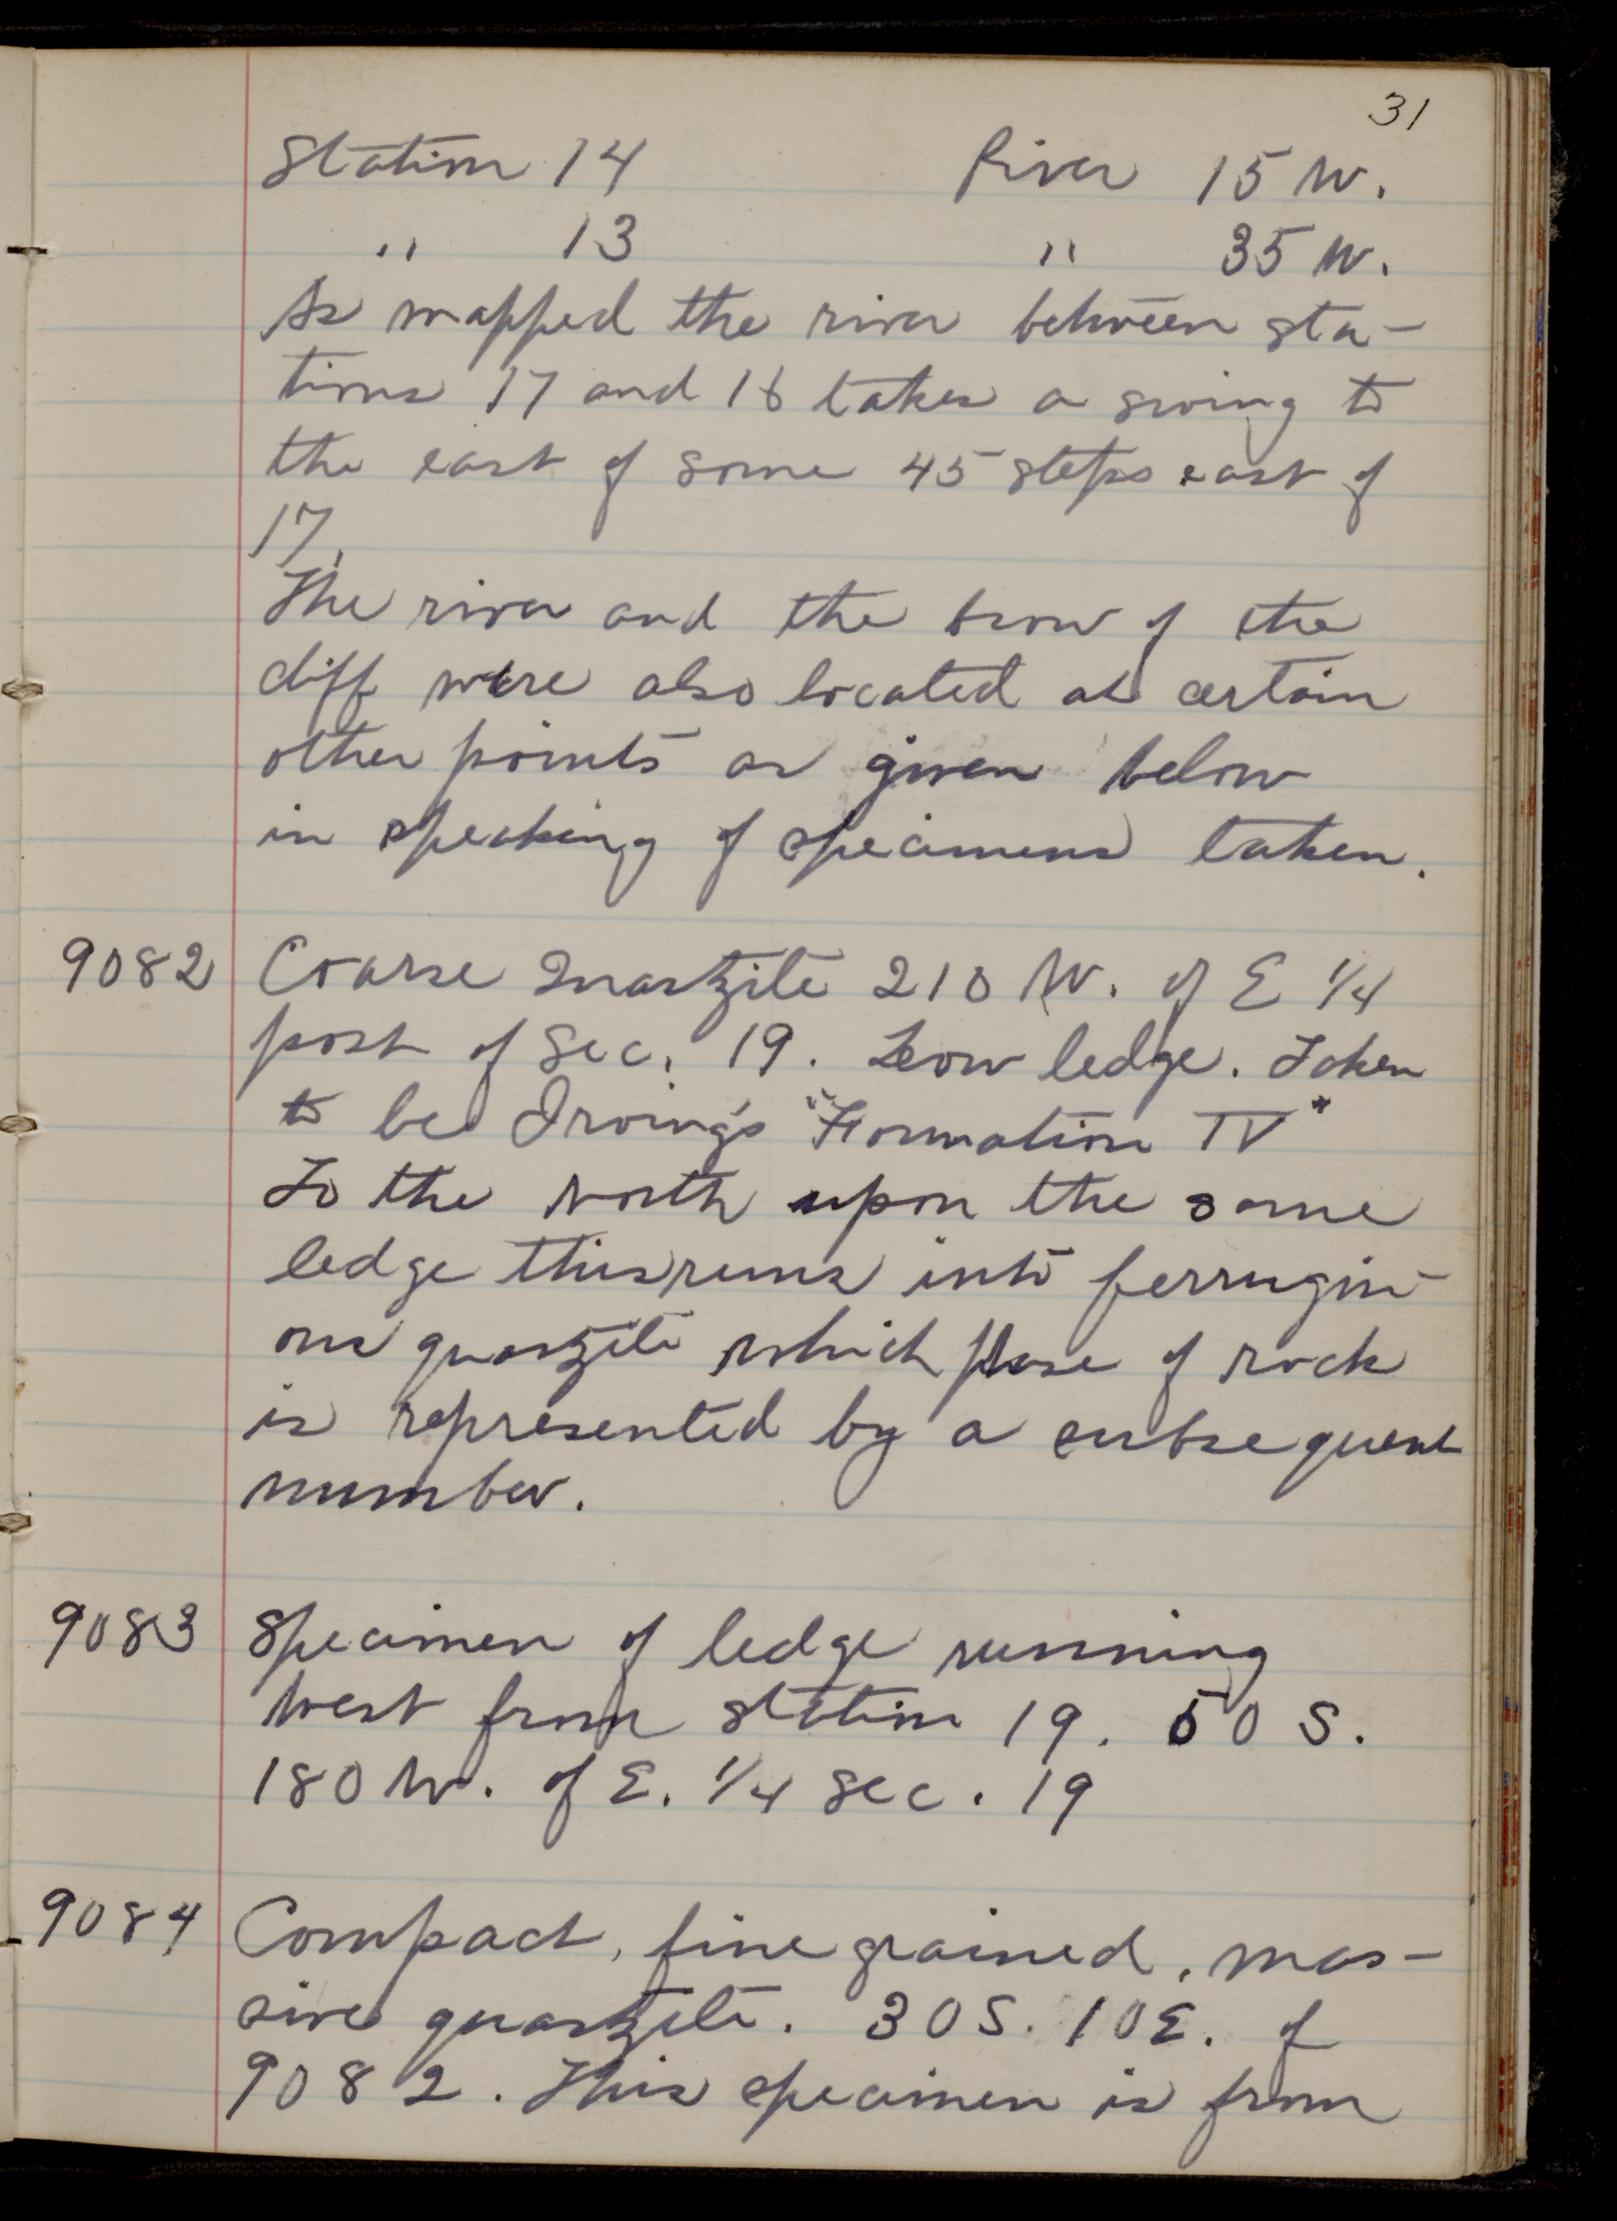 31
Station 14 River 15 W.
" 13 " 35 W.
As mapped the river between sta-
tions 17 and 16 takes a swing to
the east of some 45 steps east of
17.
The river and the brow of the
cliff were also located at certain
other points as given below
in speaking of specimens taken.
9082 Coarse Quartzite 210 W. of E 1/4
post of Sec. 19. Low ledge. Taken
to be Irving's "Formation IV"
To the North upon the same
ledge this runs into ferrugin-
ous quartzite which phase of rock
is represented by a subsequent
number.
9083 Specimen of ledge running
West from station 19. 50 S.
180 W. of E. 1/4 Sec. 19
9084 Compact, fine grained, mas-
sive quartzite. 30 S. 10 E. of
9082. This specimen is from